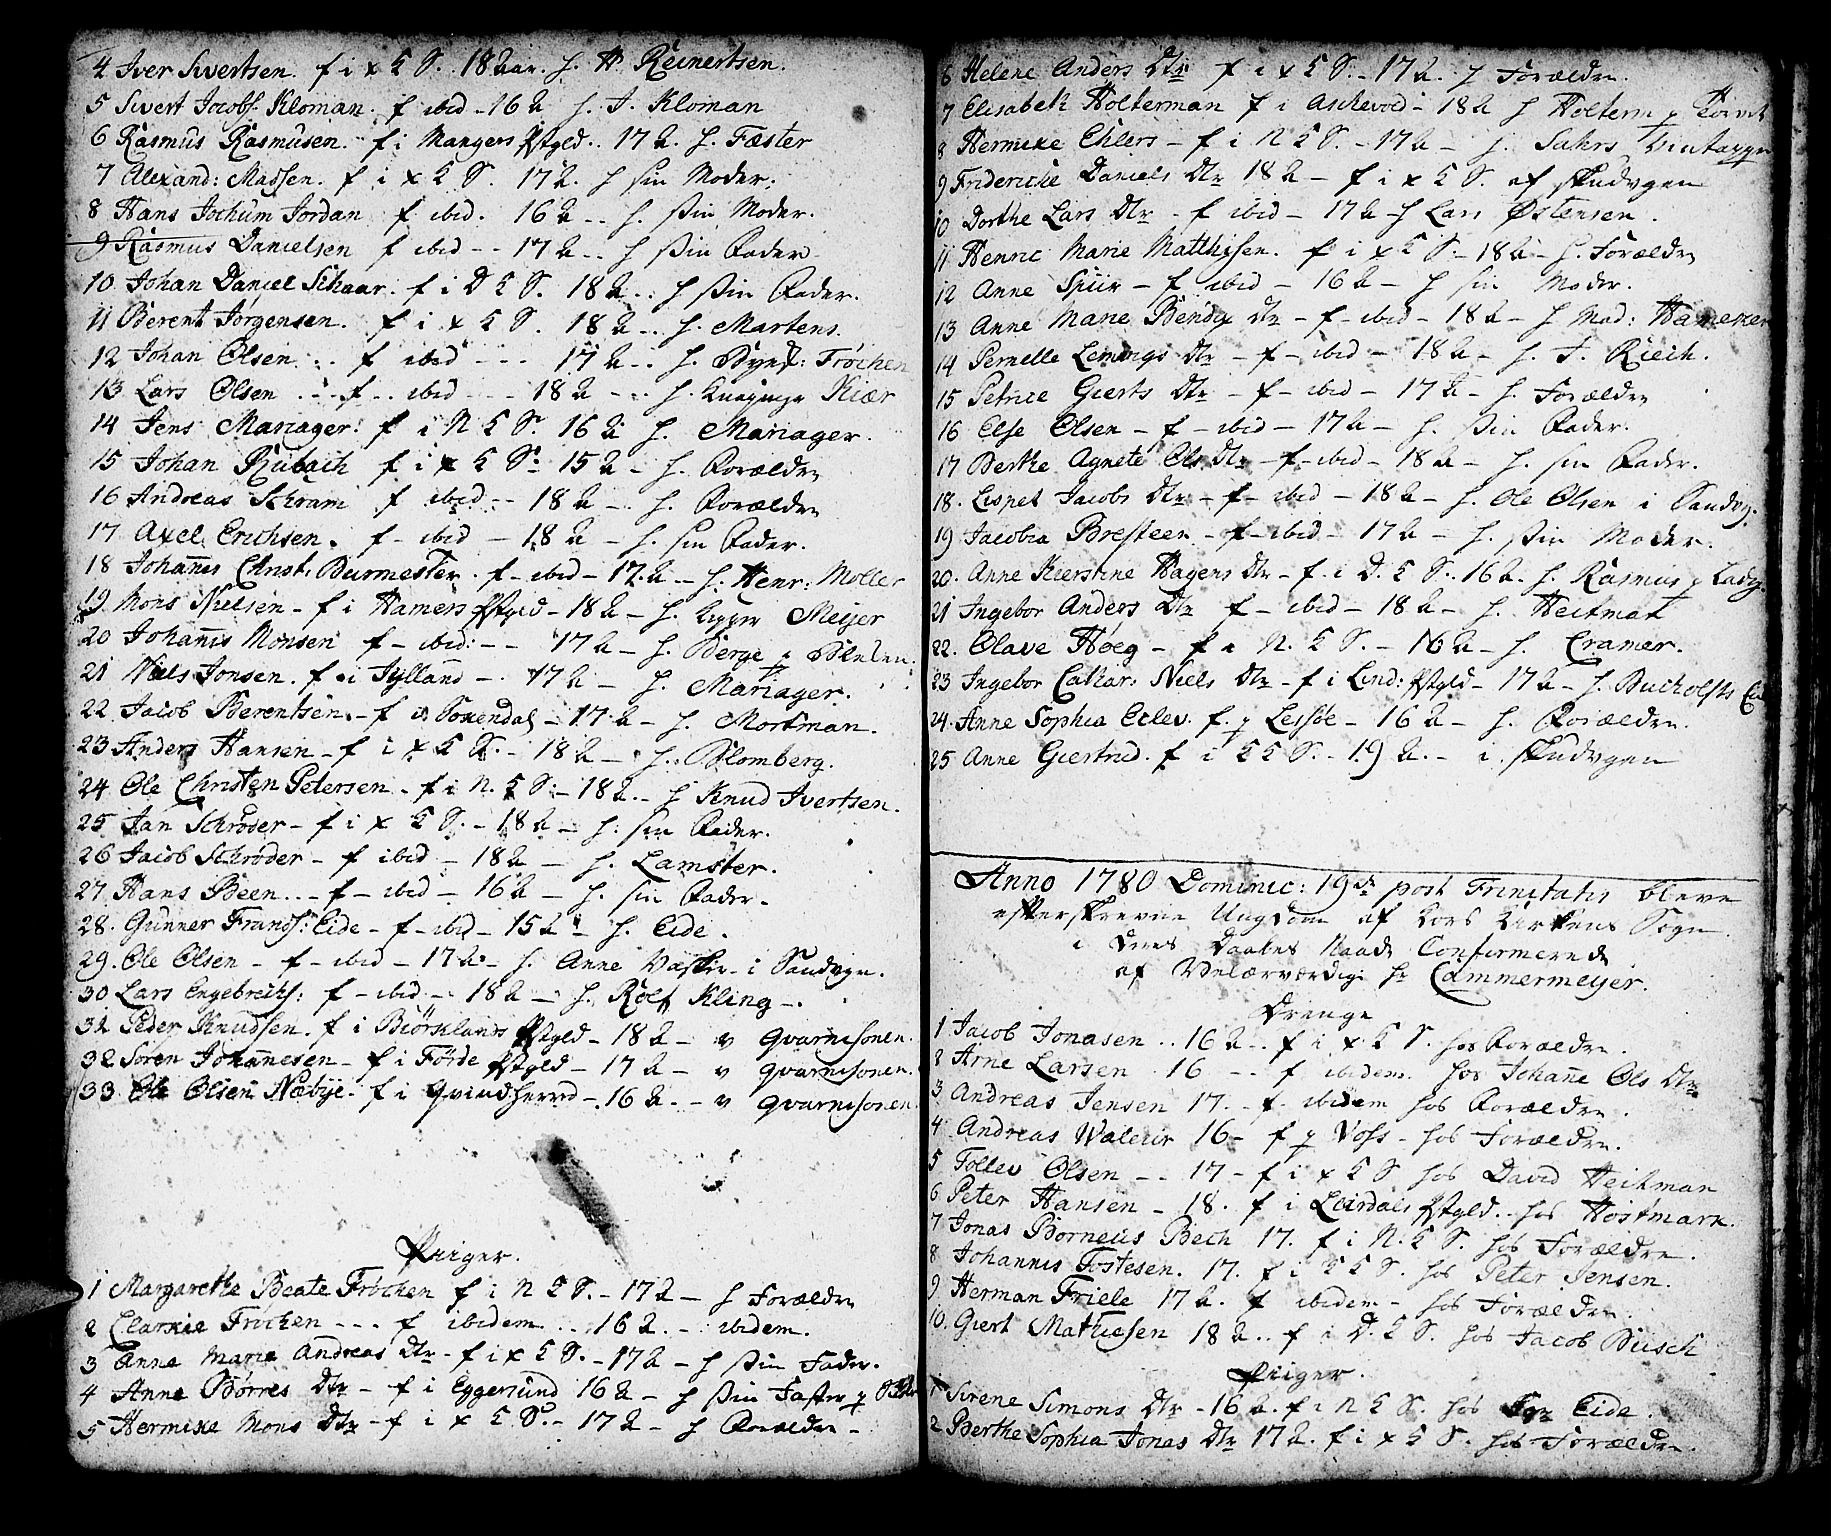 4 Iver Sivertsen. f i x K S. 18 aar. h. H. Reinertsen.
5 Sivert Jacobs. Kloman. f ibid - 16 a h. J. Kloman
6 Rasmus Rasmusen. f i Mangers Pstgld.. 17 a. h. Fæster
7 Alexand: Massen. f i x K S. 17 a. h sin Moder.
8 Hans Jochum Jordan f ibid. 16 a.. h. sin Moder.
9 Rasmus Danielsen f ibid -- 17 a.. h sin Fader.
10 Johan Daniel Schaar. f i D K S. 18 a.. h sin Fader.
11 Berent Jørgensen. f i x K S. 18 a.. h. Martens.
12 Johan Olsen... f ibid --- 17 a.. h. Frøchen
13 Lars Olsen ... f.. ibid --- 18 a... h. Kiær
14 Jens Mariager. f i N K S 16 a h. Mariager.
15 Johan Rubach f i x K S. 15 a - h. Forældre
16 Andreas Schram f ibid -- 18 a - h. Forældre
17 Axel Erichsen. f - ibid - 18 a - h. sin Fader.
18 Johannes Christ: Burmester. f - ibid - 17 a - h. Henr: Møller
19 Mons Nielsen - f i Hamers Pstgld - 18 a - h. Meyer
20 Johannis Monsen f - ibid: -- 17 a - h. Berge p
21 Niels Jonsen. f. i Jylland -. 17 a - h. Mariager.
22 Jacob Berentsen. - f i Soxendal - 17 a - h. Mortman.
23 Anders Hansen - f i x K S. - 18 a - h. Blomberg.
24 Ole Christen Petersen - f i N. K S. - 18 a. - h Knud Ivertsen.
25 Jan Schrøder - f i x K S. - 18 a - h. sin Fader.
26 Jacob Schrøder - f ibid - 18 a - h. Lamster.
27 Hans Been... f - ibid - 16 a - h. sin Fader.
28. Gunner Frands: Eide - f - ibid - 15 a - h. Eide.
29. Ole Olsen - f - ibid - 17 a - h. Anne Vaskr - i Sandvgn.
30 Lars Engebreths: f - ibid - 18 a - h. Rolf Kling -.
31 Peder Knudsen. f i Biørklands Pstgld - 18 a - v Gvarnisonen.
32 Søren Johannesen - f i Førde Pstgld - 17 a - v Gvarnisonen.
33 Ole Olsen Næbye - f i Qvindherred - 16 a. - v Gvarnisonen.
Piiger.
1 Margarethe Beate Frøchen f i N K S. - 17 a - h Forældre
2 Frøchen --- f ibidem.. 16 a. -: ibidem.
3 Anne Marie Andreas Dtr - f i x K S. - 17 a - h sin Fader.
4 Anne Børres Dtr - f i Eggersund 16 a - h sin Faster p
5 Hermine Mons Dtr - f i x K S. - 17 a - h Forældre -
6 Helene Anders Dtr f i x K S. - 17 a. h Forældre.
7 Elisabeth Holterman f i Aschevold - 18 a h Holterm p
8 Hermine Ehlers - f i N K S. - 17 a - h. Sahrs
9 Frideriche Daniels Dtr 18 a - f i x K S. af Skudvgen
10 Dorthe Lars Dtr - f ibid - 17 a - h Lars Østensen.
11 Henric Marie Matthisen. f i x K S. - 18 a - h. Forældre
12 Anne Spiir - f ibid - 16 a - h sin Moder.
13 Anne Marie Bendix Dtr - f - ibid - 18 a - h Mad: Haneken
14 Pernelle Lemings Dtr - f - ibid - 18 a - h. J. Riech.
15 Petrice Gierts Dtr - f - ibid - 17 a - h. Forældre
16 Else Olsen - f - ibid - 17 a - h. sin Fader.
17 Berthe Agnete Ols Dtr - f - ibid - 18 a - h. sin Fader.
18. Lispet Jacobs Dtr - f - ibid - 18 a - h. Ole Olsen i Sandvg.
19 Jacobia Bresteen - f - ibid - 17 a - h. sin Moder.
20. Anne Kierstine Hagens Dtr - f. i D. K S. - 16 a. h. Rasmus p Ladeg.
21 Ingebor Anders Dtr f - ibid - 18 a - h. Heitmat
22. Olave Høeg - f i N. K S. - 16 a - h. Cramer.
23 Ingebor Cathar: Niels Dtr - f i Lind: Pstgld - 17 a - h. Bucholfts
24. Anne Sophia Edlev. f. p Lessøe - 16 a - h. Forældre.
25 Anne Giertrud. f i K K S. - 19 a. - i. Skudvgen
Anno 1780 Dominic: 19de post Trinitatis bleve
efterskrevne Ungdom af Kors Kirkens Sogn
i Deres Daabes Naade Confirmerede
af Velærværdige Hr Cammermeyer.
Drenge
1 Jacob Jonasen.. 16 a.. f i x K S. hos Forældre.
2 Arne Larsen. 16 -- f ibidem. hos Johanne Ols Dtr
3 Andreas Jensen 17. - f - ibidem hos Forældre.
4 Andreas Waleur 16 - f p Voss - hos Forældre.
5 Tollev Olsen -- 17 - f i x K S. hos David Heitman
6 Peter Hansen - 18. f i Leirdals Pstgld. - hos Høstmark.
7 Jonas Borneus Bech 17. f i N. K S. hos Forældre.
8 Johannis Tostesen. 17. f i K K S. hos Peter Jensen.
9 Herman Friele 17 a. f ibidem - hos Forældre.
10. Giert Mathiesen 18 a.. f i D. K S. hos Jacob Busch
Piiger.
1 Sirene Simons Dtr - 16 a. f i N K S. hos Eide.
2 Berthe Sophia Jonas Dtr 17 a. f i x K S. hos Forældre.